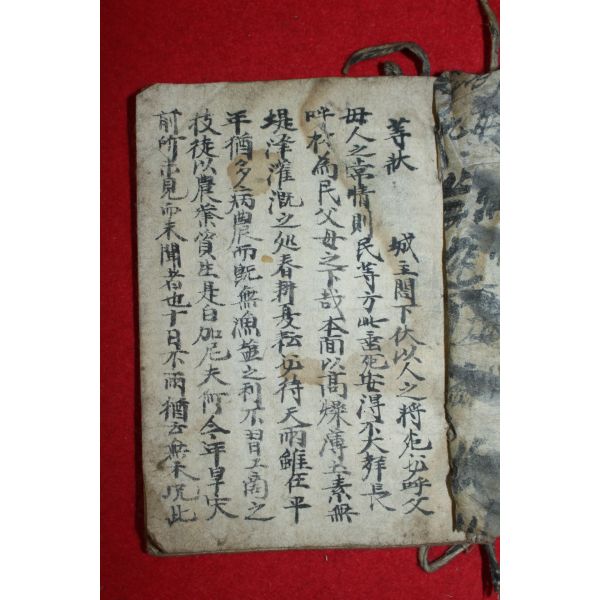 等狀 城主閤下伏以人之將死必呼父
母人之常情則民等方此垂死安得不大聲長
呼於為民父母之下哉本面以高燥薄土素無
堤澤灌溉之処春耕夏耘必待天雨雖在平
年猶多病農而旣無漁塩之利不習工商之
技徒以農業資生是白加尼夫何今年旱灾
前所未見而未聞者也十日不雨猶云無禾况此